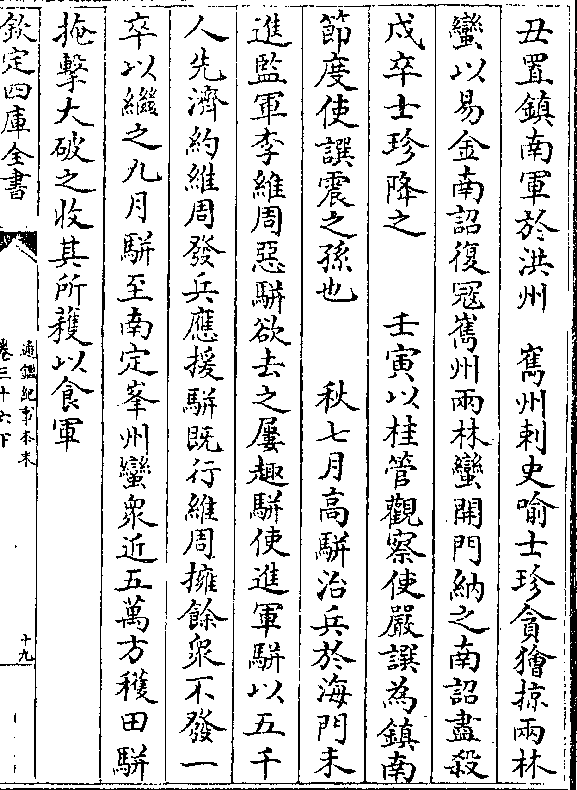 丑置鎮南軍於洪州　嶲州刺史喻士珍貪獪掠兩林
蠻以易金南詔復寇嶲州兩林蠻開門納之南詔盡殺
戍卒士珍降之　壬寅以桂管觀察使嚴譔為鎮南
節度使譔震之孫也　秋七月高駢治兵於海門未
進監軍李維周惡駢欲去之屢趣駢使進軍駢以五千
人先濟約維周發兵應援駢既行維周擁餘衆不發一
卒以繼之九月駢至南定峯州蠻衆近五萬方穫田駢
掩擊大破之收其所穫以食軍
欽定四庫全書
通鑑紀事本末
卷三十六下
十九